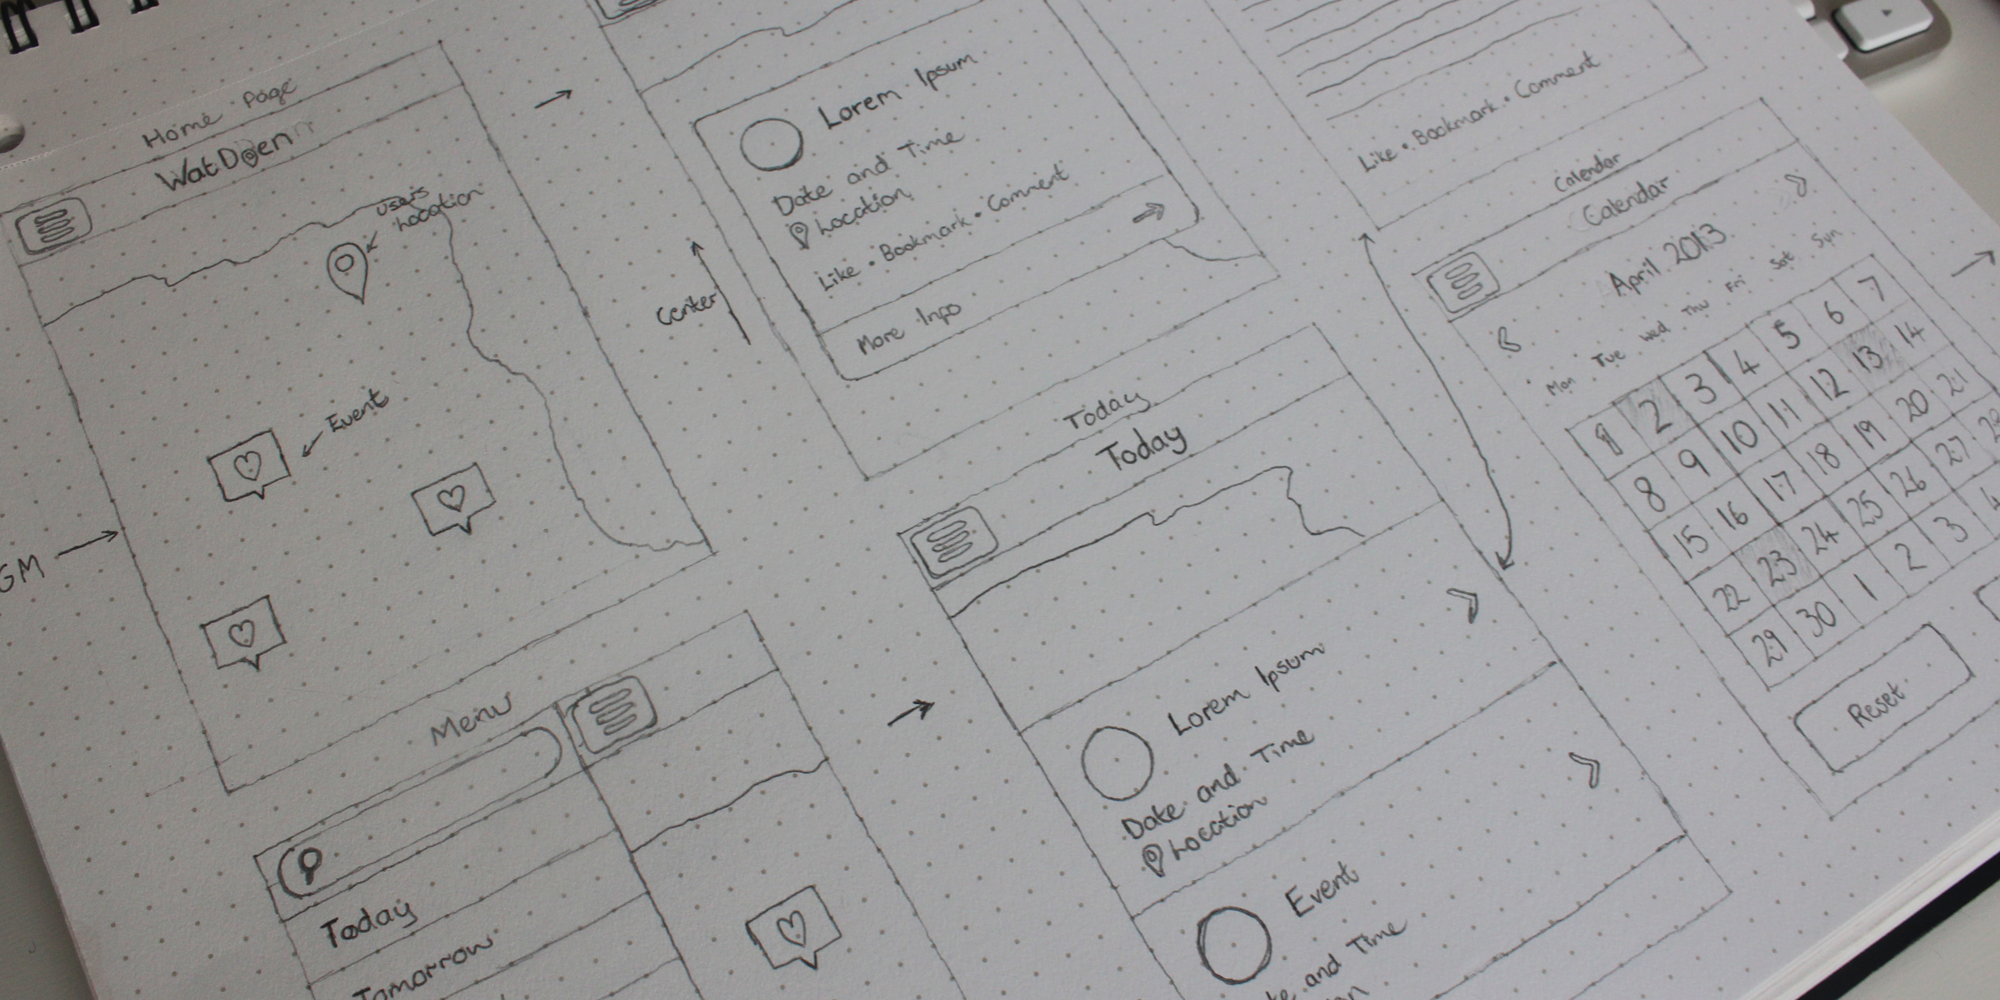 Home Page
WatDoen
users
Location
Event
GM
Lorem Ipsum
Date and Time
Location
Like • Bookmark • Comment
More Info
Center
Menu
Today
Tomorrow
Today
Today
Lorem Ipsum
Date and Time
Location
Event
and Time
Like • Bookmark • Comment
Calendar
Calendar
April 2013
Mon Tue Wed Thu Fri Sat Sun
1 2 3 4 5 6 7
8 9 10 11 12 13 14
15 16 17 18 19 20 21
22 23 24 25 26 27 28
29 30 1 2 3 4
Reset